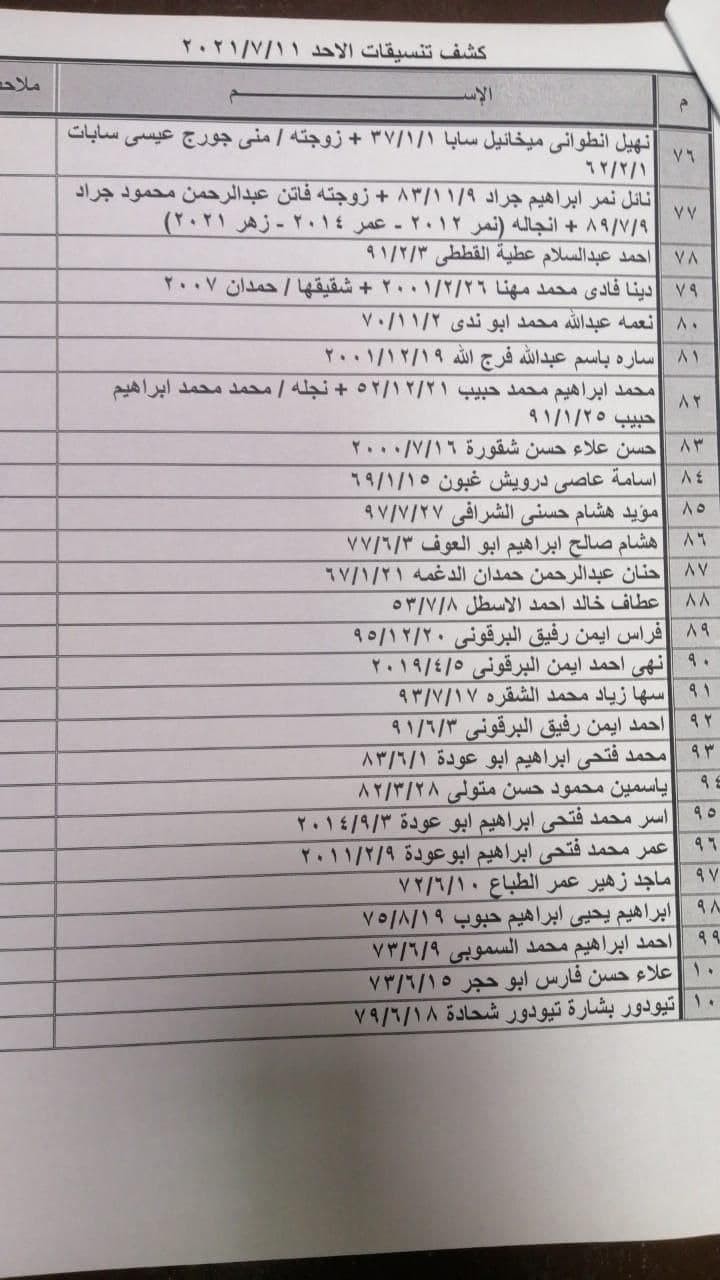 كشف تنسيقات الاحد ٢٠٢١/٧/١١
م الإســـم ملاحـ
٧٦ نهيل انطوانى ميخائيل سابا ٣٧/١/١ + زوجته / منى جورج عيسى سابات
٦٢/٢/١
٧٧ نائل نمر ابراهيم جراد ٨٣/١١/٩ + زوجته فاتن عبدالرحمن محمود جراد
٨٩/٧/٩ + انجاله (نمر ٢٠١٢ - عمر ٢٠١٤ - زهر ٢٠٢١)
٧٨ احمد عبدالسلام عطية القططى ٩١/٢/٣
٧٩ دينا فادى محمد مهنا ٢٠٠١/٢/٢٦ + شقيقها / حمدان ٢٠٠٧
٨٠ نعمه عبدالله محمد ابو ندى ٧٠/١١/٢
٨١ ساره باسم عبدالله فرج الله ٢٠٠١/١٢/١٩
٨٢ محمد ابراهيم محمد حبيب ٥٢/١٢/٢١ + نجله / محمد محمد ابراهيم
حبيب ٩١/١/٢٥
٨٣ حسن علاء حسن شقورة ٢٠٠٠/٧/١٦
٨٤ اسامة عاصى درويش غبون ٦٩/١/١٥
٨٥ مؤيد هشام حسنى الشرافى ٩٧/٧/٢٧
٨٦ هشام صالح ابراهيم ابو العوف ٧٧/٦/٣
٨٧ حنان عبدالرحمن حمدان الدغمه ٦٧/١/٢١
٨٨ عطاف خالد احمد الاسطل ٥٣/٧/٨
٨٩ فراس ايمن رفيق البرقونى ٩٥/١٢/٢٠
٩٠ نهى احمد ايمن البرقونى ٢٠١٩/٤/٥
٩١ سها زياد محمد الشقره ٩٣/٧/١٧
٩٢ احمد ايمن رفيق البرقونى ٩١/٦/٣
٩٣ محمد فتحى ابراهيم ابو عودة ٨٣/٦/١
٩٤ ياسمين محمود حسن متولى ٨٢/٣/٢٨
٩٥ اسر محمد فتحى ابراهيم ابو عودة ٢٠١٤/٩/٣
٩٦ عمر محمد فتحى ابراهيم ابوعودة ٢٠١١/٢/٩
٩٧ ماجد زهير عمر الطباع ٧٢/٦/١٠
٩٨ ابراهيم يحيى ابراهيم حبوب ٧٥/٨/١٩
٩٩ احمد ابراهيم محمد السموبى ٧٣/٦/٩
١٠ علاء حسن فارس ابو حجر ٧٣/٦/١٥
١٠ تيودور بشارة تيودور شحادة ٧٩/٦/١٨